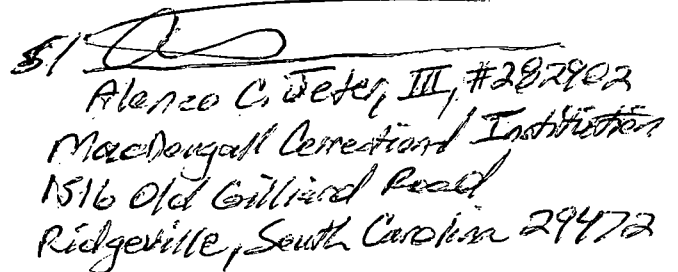 s/
Alonzo C. Jeter, III, #282902
MacDougall Correctional Institution
1516 Old Gilliard Road
Ridgeville, South Carolina 29472